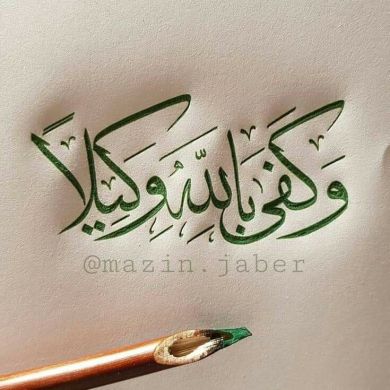 وَكَفَى بِاللَّهِ وَكِيلاً
@mazin.jaber